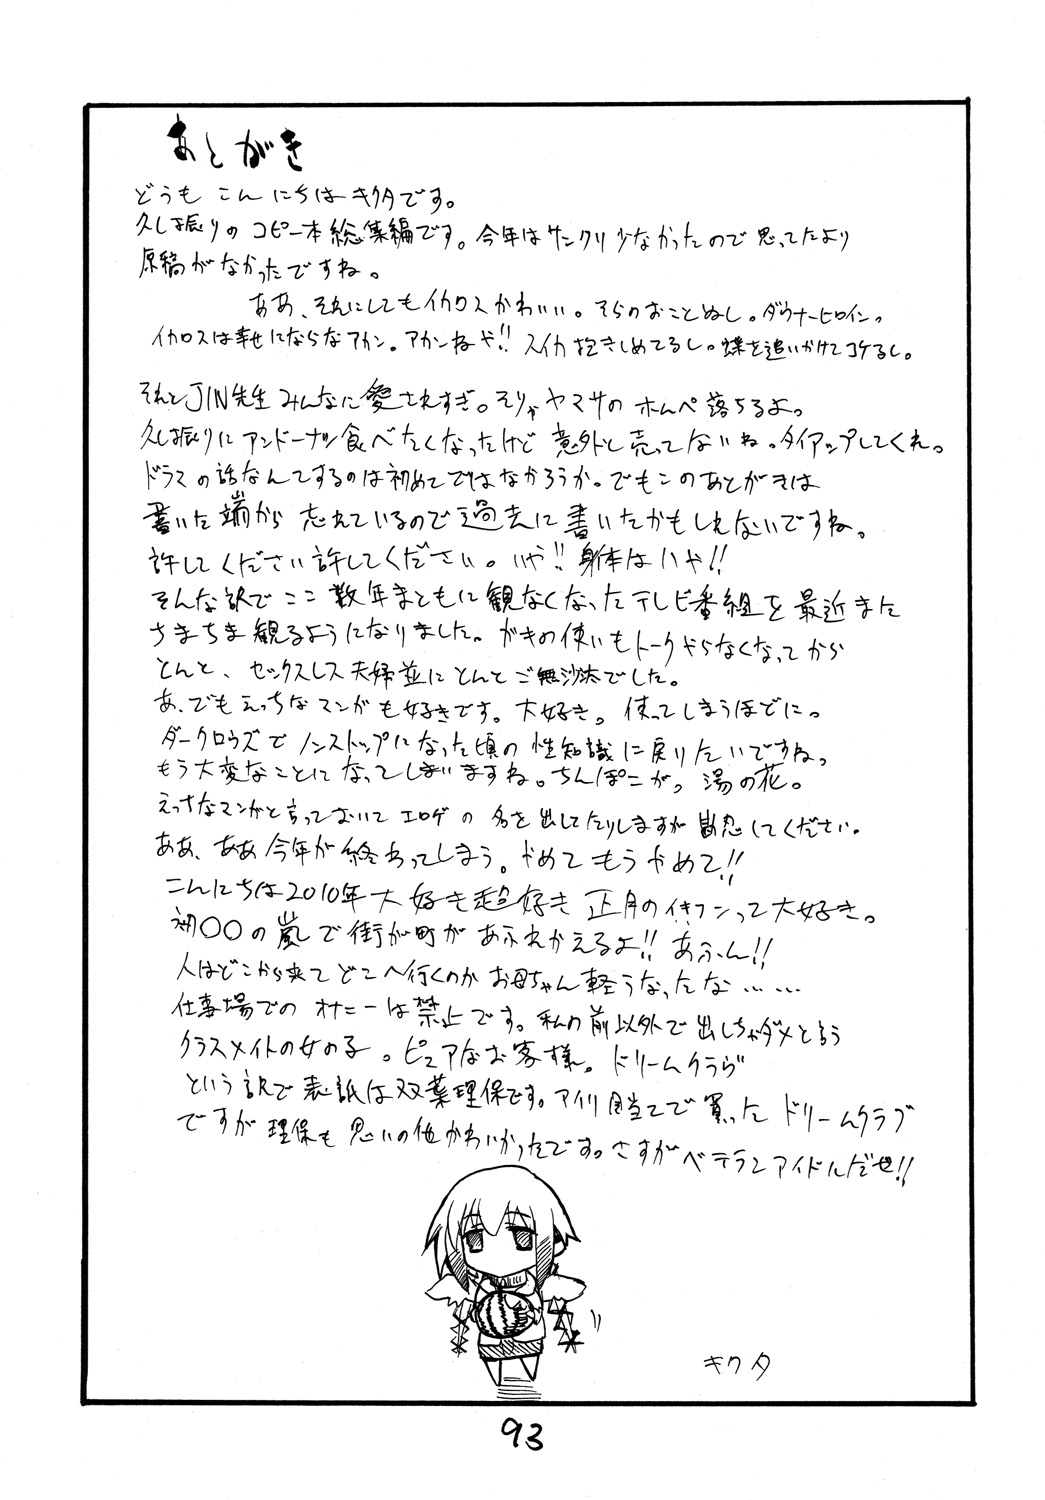 あとがき
どうも こんにちは キクタです。
久し振りの コピー本総集編です。今年はサンクリ少なかったので思ってたより
原稿がなかったですね。
ああ、それにしてもイカロスかわいい。そらのおとこぬし。ダウナーヒロイン。
イカロスは幸せにならなアカン。アカンねや!! スイカ抱きしめてるし。蝶を追いかけてコケるし。
それとJIN先生みんなに愛されすぎ。そりゃヤマサのホムペ落ちるよ。
久し振りにアンドーナツ食べたくなったけど 意外と売ってないね。タイアップしてくれ。
ドラマの話なんてするのは初めてではなかろうか。でもこのあとがきは
書いた端から 忘れているので過去に書いたかもしれないですね。
許してください許してください。いや!! 身体はいや!!
そんな訳でここ数年まともに観なくなったテレビ番組を最近また
ちまちま観るようになりました。ガキの使いもトークやらなくなってから
とんと、セックスレス夫婦並にとんとご無沙汰でした。
あ、でもえっちなマンガも好きです。大好き。使ってしまうほどに。
ダークロウズでノンストップになった頃の性知識に戻りたいですね。
もう大変なことになってしまいますね。ちんぽこが。湯の花。
えっちなマンガと言っておいてエロゲの名を出してたりしますが勘忍してください。
ああ、ああ今年が終わってしまう。やめてもうやめて!!
こんにちは2010年大好き超好き 正月のフンイキって大好き。
初〇〇の嵐で街が町があふれかえるよ!! あふん!!
人はどこから来てどこへ行くのか お母ちゃん軽うなったな……
仕事場でのオナニーは禁止です。私の前以外で出しちゃダメと言う
クラスメイトの女の子。ピュアなお客様。ドリームクラブ
という訳で表紙は双葉理保です。アイリ目当てで買ったドリームクラブ
ですが理保も思いの他かわいかったです。さすがベテランアイドルだぜ!!
キクタ
93